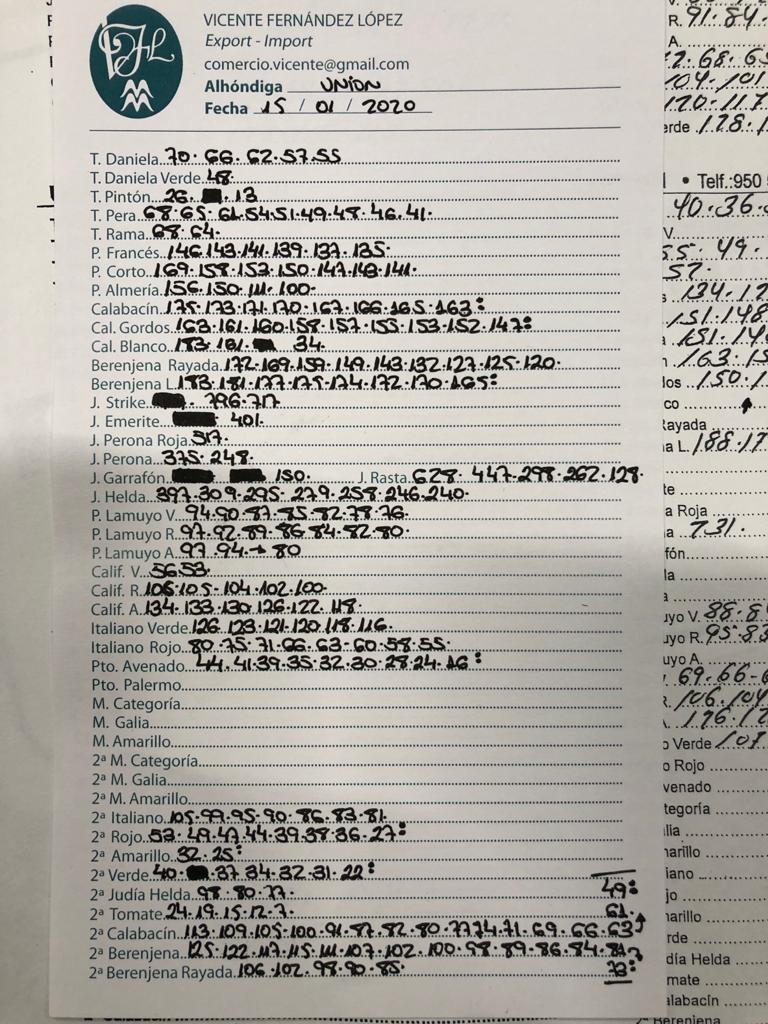 VICENTE FERNÁNDEZ LÓPEZ
Export - Import
comercio.vicente@gmail.com
Alhóndiga UNIÓN
Fecha 15 / 01 / 2020
T. Daniela 70. 66. 62.57.55
T. Daniela Verde 48
T. Pintón 26. . 13
T. Pera 68.65. 61.54.51.49.48.46.41.
T. Rama 68.64.
P. Francés 146.143.141.139.137.135.
P. Corto 169.158.153.150.147.143.141.
P. Almería 156.150.111.100.
Calabacín 175.173.171.170.167.166.165.163:
Cal. Gordos 163.161.160.158.157.155.153.152.147:
Cal. Blanco 183.181. 34.
Berenjena Rayada 172.169.159.149.143.132.127.125.120.
Berenjena L. 183.181.177.175.174.172.170.165:
J. Strike . 796.717
J. Emerite 401.
J. Perona Roja 517.
J. Perona 375.248.
J. Garrafón 150. J. Rasta 628. 447.298.262.128.
J. Helda 397.309.295.279.258.246.240.
P. Lamuyo V. 94.90.87.85.82.78.76.
P. Lamuyo R. 97.92.89.86.84.82.80.
P. Lamuyo A. 97.94.→ 80
Calif. V. 56.53.
Calif. R. 106.105.104.102.100.
Calif. A. 134.133.130.126.122.118.
Italiano Verde 126.123.121.120.118.116.
Italiano Rojo 80.75.71.66.63.60.58.55.
Pto. Avenado 44.41.39.35.32.30.28.24.16:
Pto. Palermo
M. Categoría
M. Galia
M. Amarillo
2ª M. Categoría
2ª M. Galia
2ª M. Amarillo
2ª Italiano 105.99.95.90.86.83.81.
2ª Rojo 53.49.47.44.39.38.36.27:
2ª Amarillo 32.25:
2ª Verde 40. .37.34.32.31.22:
2ª Judía Helda 98.80.77. 49:
2ª Tomate 24.19.15.12.7. 61.
2ª Calabacín 113.109.105.100.91.87.82.80.77.74.71.69.66.63
2ª Berenjena 125.122.117.115.111.107.102.100.98.89.86.84.81
2ª Berenjena Rayada 106.102.98.90.85. 73:
R. 91.84.
A.
104.101
120.117
erde 128.1
• Telf.:950
40.36.
V.
55. 49.
57.
134.12
151.148
163.15
los 150.1
co
Rayada
a L. 188.17
te
a Roja
a 731.
fón
la
uyo V. 88.8
uyo R. 95.83
uyo A.
69.66.6
R. 106.104
o Verde 107
o Rojo
venado
tegoría
lia
narillo
iano
jo
narillo
rde
día Helda
mate
alabacín
Berenjena